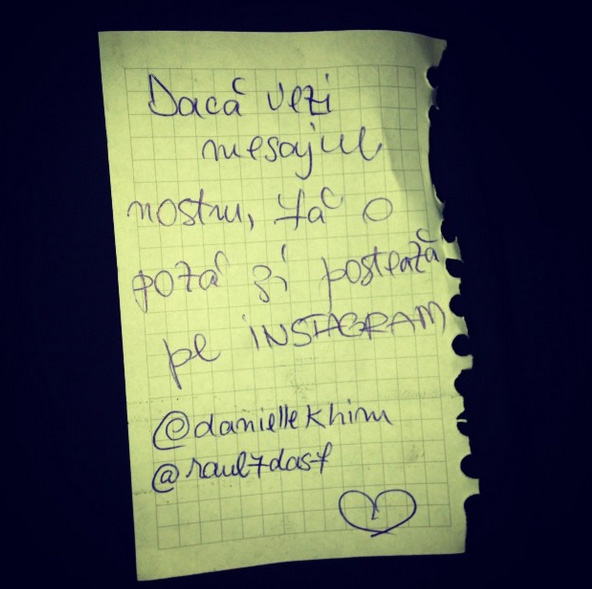 Dacă vezi
mesajul
nostru, fă o
poză și postează
pe INSTAGRAM
@daniellekhim
@raul7dasf